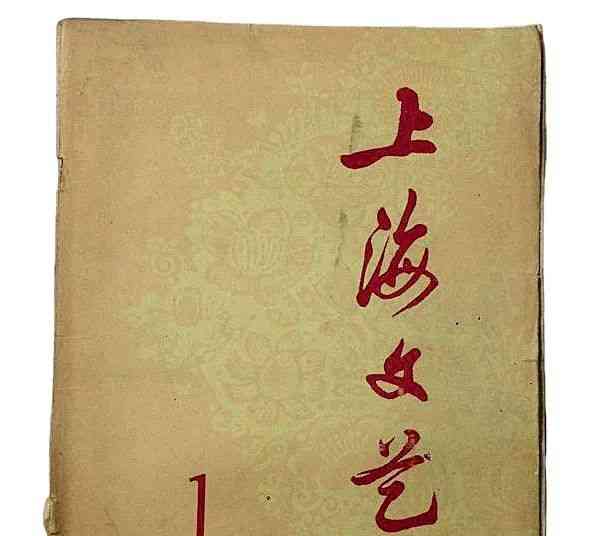 上海文艺
1